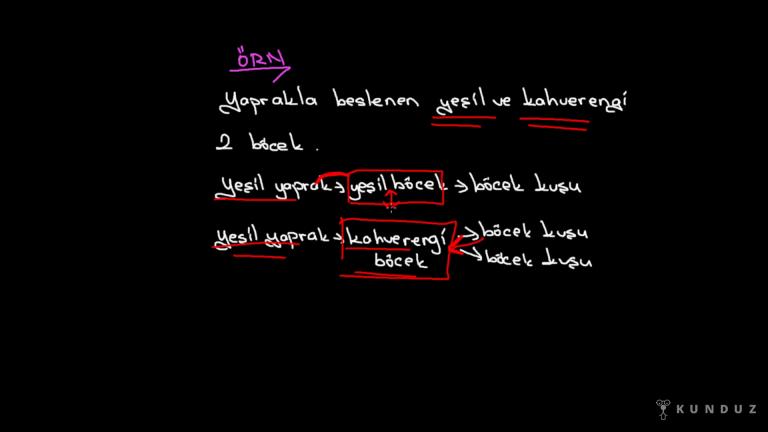 ÖRN
Yaprakla beslenen yeşil ve kahverengi
2 böcek.
Yeşil yaprak → yeşil böcek → böcek kuşu
Yeşil yaprak → kahverengi → böcek kuşu
böcek → böcek kuşu
KUNDUZ